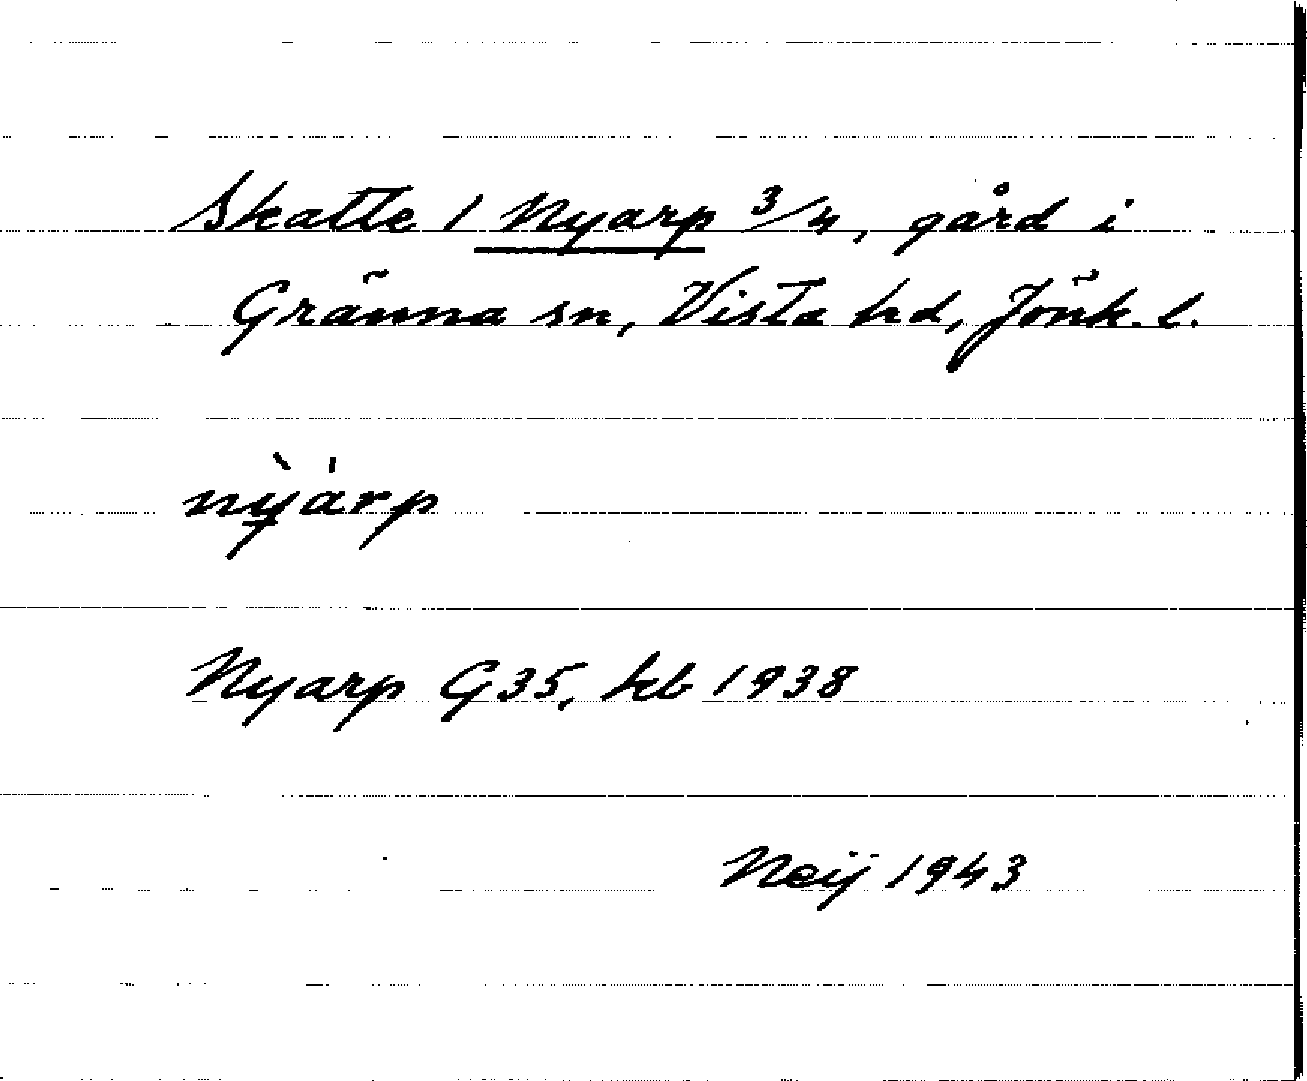 Skatte 1 Nyarp 3/4, gård i
Gränna sn, Vista hd, Jönk. l.
nỳárp
Nyarp G35, kb 1938
Neij 1943